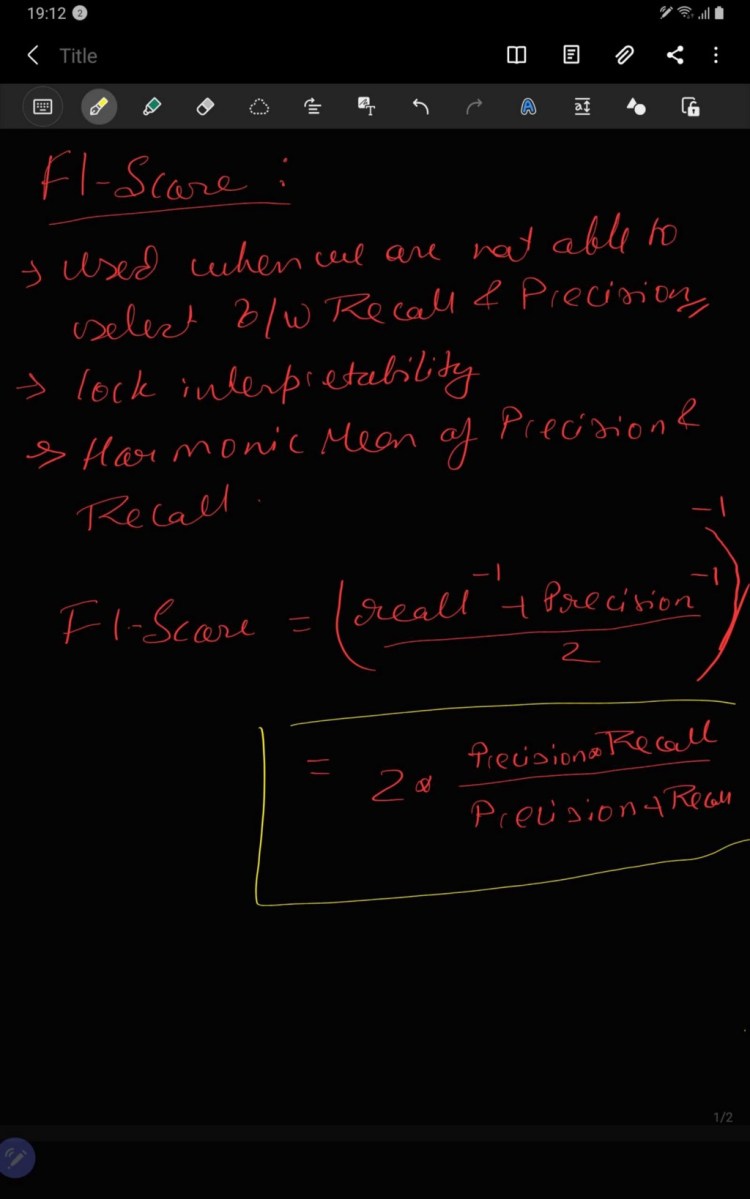 19:12 2
Title
F1-Score :
→ Used when we are not able to
select b/w Recall & Precision
→ lack interpretability
→ Harmonic Mean of Precision &
Recall.
F1-Score = ((recall^-1 + Precision^-1) / 2)^-1
= 2 * (Precision * Recall) / (Precision + Recall)
1/2